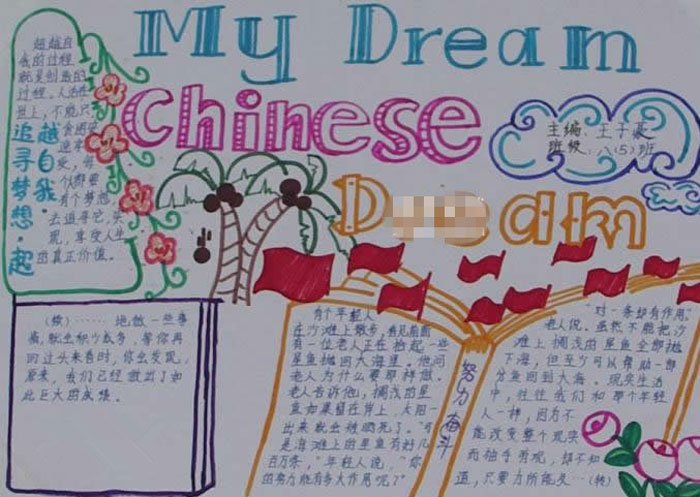 My Dream
Chinese
D eam
主编：王子豪
班级：八(5)班
超越自
我的过程
就是创造的
过程。人活在
世上，不能只
受，每
个人都要
有个梦想，
去追寻它，实
现，享受人生
的真正价值。
越自我
追寻梦想·起
(续)……地做一些事
情，就业积少成多，等你再
回过头来看时，你会发现，
原来，我们已经做出了如
此巨大的成绩。
有个年轻人
在沙滩上散步，看见前面
有一位老人正在拾起一些
星鱼抛回大海里。他问
老人为什么要那样做。
老人告诉他，搁浅的星
鱼如果留在岸上，太阳一
出来就会被晒死了。"可
是海滩上的星鱼有好几
百万条，"年轻人说，"你
的努力能有多大作用呢？"
努力奋斗
"对一条却有作用。"
老人说。虽然不能把沙
滩上搁浅的星鱼全部抛
下海，但至少可以帮助一部
分鱼回到大海。现实生活
中，往往我们和那个年轻
人一样，因为不
能改变整个现实
而袖手旁观，却不知
道，只要力所能及…(转)